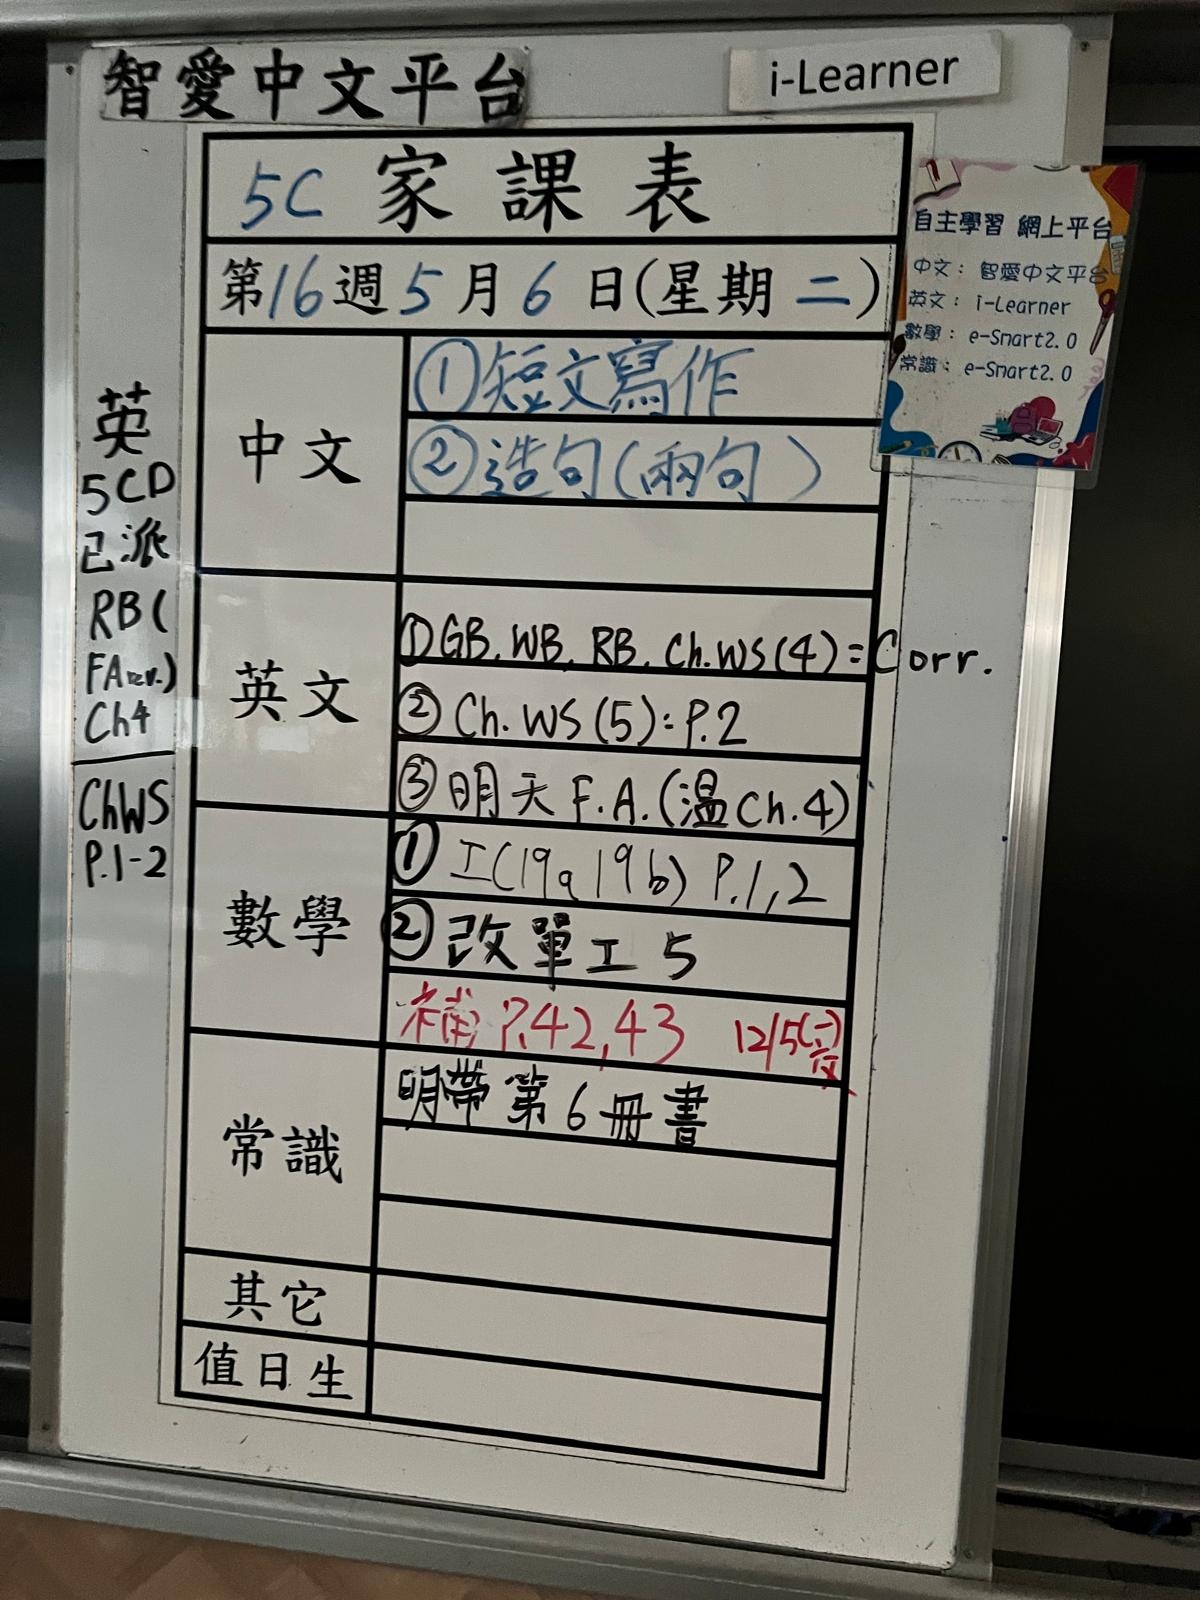 智愛中文平台
i-Learner
5C 家課表
第16週5月6日(星期二)
自主學習 網上平台
中文：智愛中文平台
英文：i-Learner
數學：e-Smart2.0
常識：e-Smart2.0
英
5CD
已派
RB(
FA rev.)
Ch4
ChWS
P.1-2
中文
①短文寫作
②造句(兩句)
英文
①GB. WB. RB. Ch.WS(4)=Corr.
②Ch. WS (5): P.2
③明天 F.A.(溫Ch.4)
數學
① 工(19a 19b) P.1,2
② 改單工 5
補 P.42,43 12/5(一)交
常識
明帶第6冊書
其它
值日生